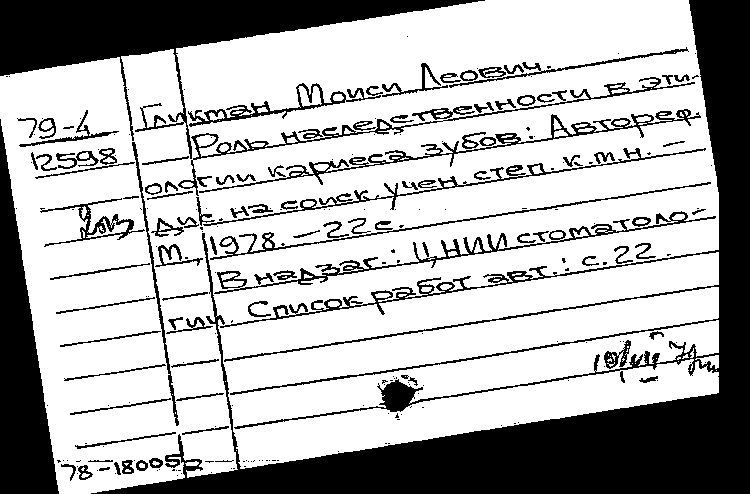 Гликман, Моиси Леович.
79-4
12598
Роль наследственности в эти-
ологии кариеса зубов: Автореф.
дис. на соиск. учен. степ. к.т.н. —
М., 1978. — 22 с.
В надзаг.: ЦНИИ стоматоло-
гии. Список работ авт.: с. 22.
78-18005